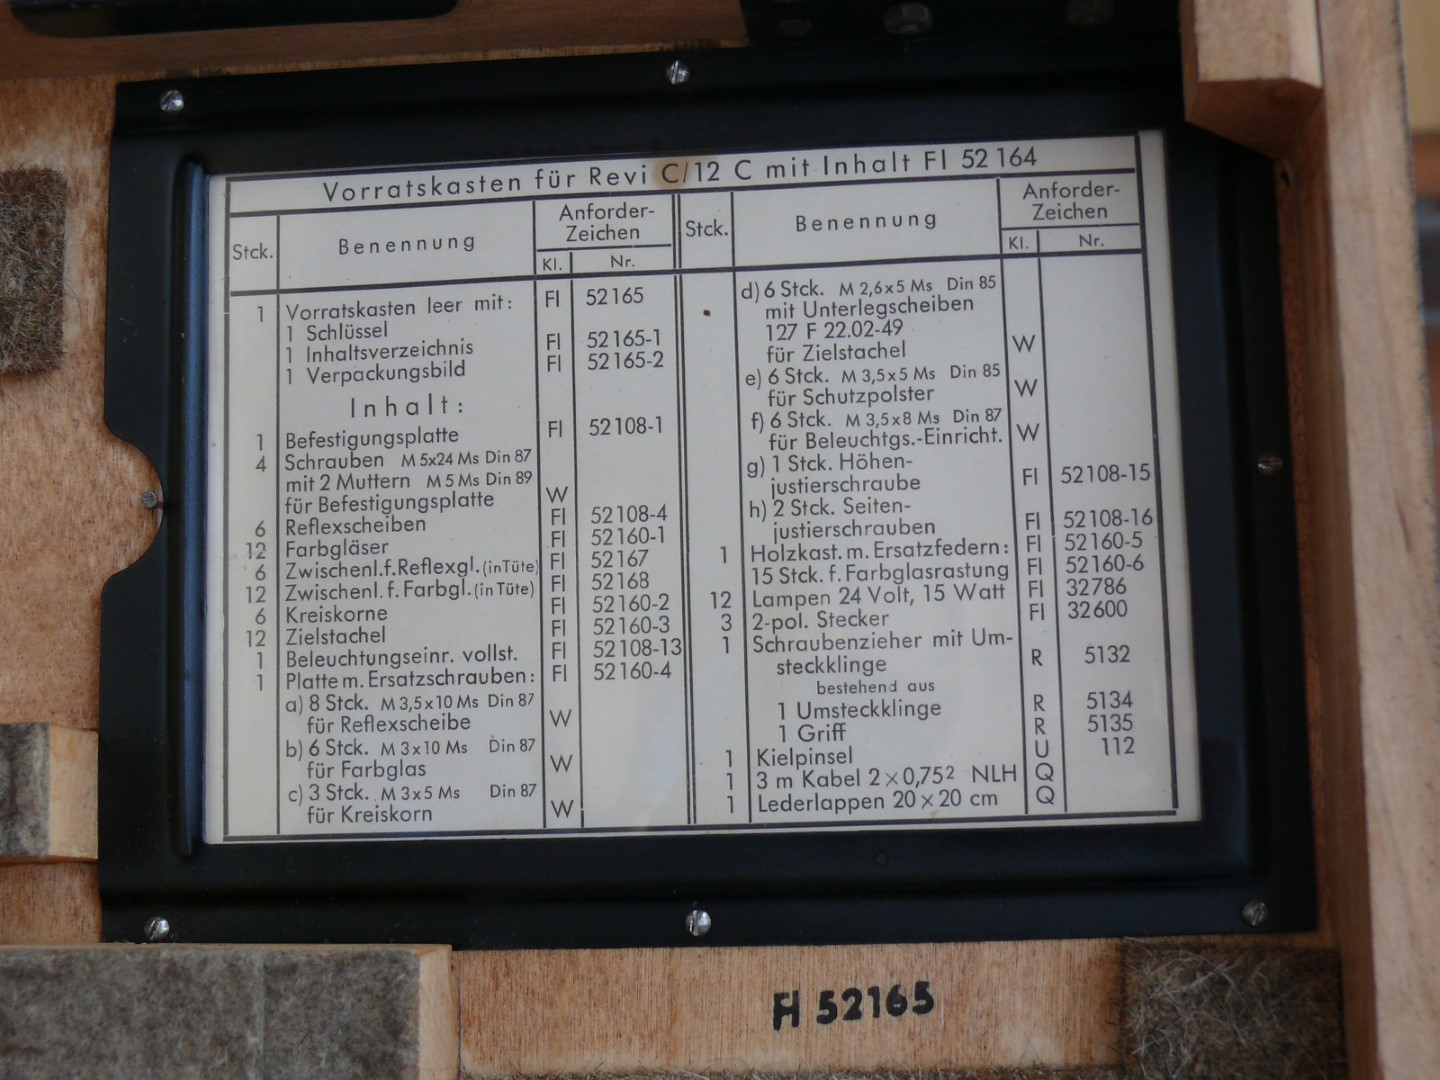 Vorratskasten für Revi C/12 C mit Inhalt Fl 52 164
Stck. Benennung Anforder-Zeichen Kl. Nr.
1 Vorratskasten leer mit: Fl 52165
1 Schlüssel
1 Inhaltsverzeichnis Fl 52165-1
1 Verpackungsbild Fl 52165-2
Inhalt:
1 Befestigungsplatte Fl 52108-1
4 Schrauben M 5x24 Ms Din 87
mit 2 Muttern M 5 Ms Din 89
für Befestigungsplatte W
6 Reflexscheiben Fl 52108-4
12 Farbgläser Fl 52160-1
6 Zwischenl.f.Reflexgl.(in Tüte) Fl 52167
12 Zwischenl.f.Farbgl.(in Tüte) Fl 52168
6 Kreiskorne Fl 52160-2
12 Zielstachel Fl 52160-3
1 Beleuchtungseinr. vollst. Fl 52108-13
1 Platte m. Ersatzschrauben: Fl 52160-4
a) 8 Stck. M 3,5x10 Ms Din 87
für Reflexscheibe W
b) 6 Stck. M 3x10 Ms Din 87
für Farbglas W
c) 3 Stck. M 3x5 Ms Din 87
für Kreiskorn W
Stck. Benennung Anforder-Zeichen Kl. Nr.
d) 6 Stck. M 2,6x5 Ms Din 85
mit Unterlegscheiben
127 F 22.02-49
für Zielstachel W
e) 6 Stck. M 3,5x5 Ms Din 85
für Schutzpolster W
f) 6 Stck. M 3,5x8 Ms Din 87
für Beleuchtgs.-Einricht. W
g) 1 Stck. Höhen-
justierschraube Fl 52108-15
h) 2 Stck. Seiten-
justierschrauben Fl 52108-16
1 Holzkast. m. Ersatzfedern: Fl 52160-5
15 Stck. f. Farbglasrastung Fl 52160-6
12 Lampen 24 Volt, 15 Watt Fl 32786
3 2-pol. Stecker Fl 32600
1 Schraubenzieher mit Um-
steckklinge R 5132
bestehend aus
1 Umsteckklinge R 5134
1 Griff R 5135
1 Kielpinsel U 112
1 3 m Kabel 2×0,75² NLH Q
1 Lederlappen 20×20 cm Q
Fl 52165